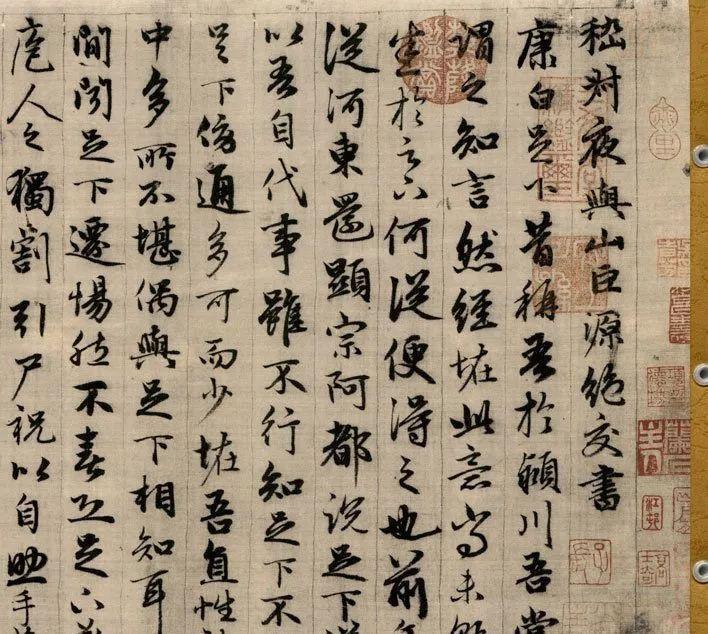 嵇叔夜與山巨源絕交書
康白足下昔稱吾於潁川吾嘗
謂之知言然經怪此意尚未
於足下何從便得之也前年
從河東還顯宗阿都說足下議
以吾自代事雖不行知足下不
足下傍通多可而少怪吾直性
中多所不堪偶與足下相知耳
間聞足下遷惕然不喜恐足下羞
庖人之獨割引尸祝以自助手